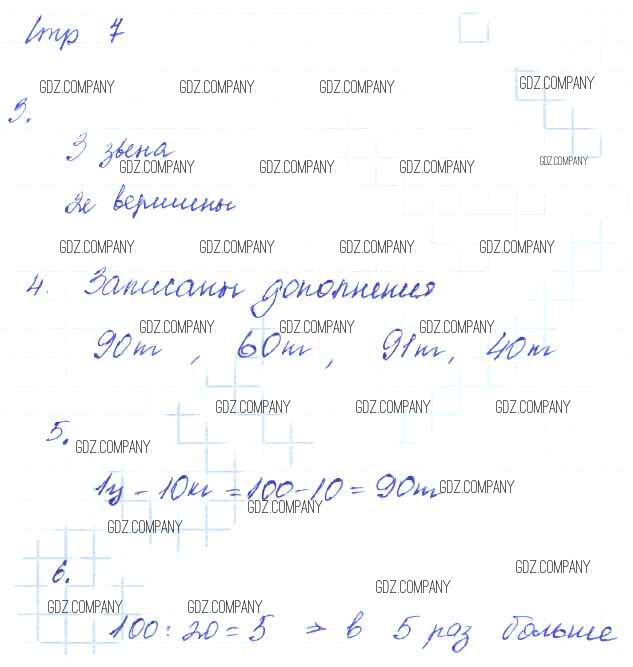 Стр 7
GDZ.COMPANY GDZ.COMPANY GDZ.COMPANY GDZ.COMPANY
3.
3 звена
GDZ.COMPANY GDZ.COMPANY GDZ.COMPANY GDZ.COMPANY
2е вершины
GDZ.COMPANY GDZ.COMPANY GDZ.COMPANY GDZ.COMPANY
4. Записаны дополнения
GDZ.COMPANY GDZ.COMPANY GDZ.COMPANY
90т, 60т, 91т, 40т
GDZ.COMPANY GDZ.COMPANY GDZ.COMPANY
5.
GDZ.COMPANY
1ц - 10кг = 100-10 = 90т
GDZ.COMPANY
GDZ.COMPANY
GDZ.COMPANY
6.
GDZ.COMPANY
GDZ.COMPANY
GDZ.COMPANY GDZ.COMPANY GDZ.COMPANY
100:20=5 => в 5 раз больше